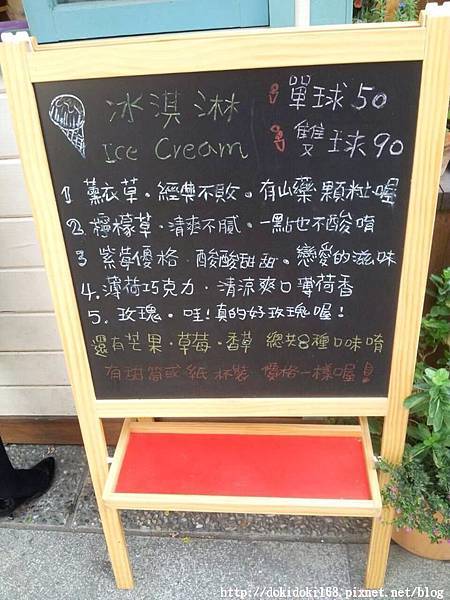 冰淇淋 單球50
Ice Cream 雙球90
1 薰衣草。經典不敗。有山藥顆粒喔
2 檸檬草。清爽不膩。一點也不酸唷
3 紫莓優格 酸酸甜甜。戀愛的滋味
4. 薄荷巧克力。清涼爽口薄荷香
5. 玫瑰。哇!真的好玫瑰喔!
還有芒果.草莓.香草 總共8種口味唷
有甜筒或紙杯裝 價格一樣喔!
http://dokidoki168.pixnet.net/blog